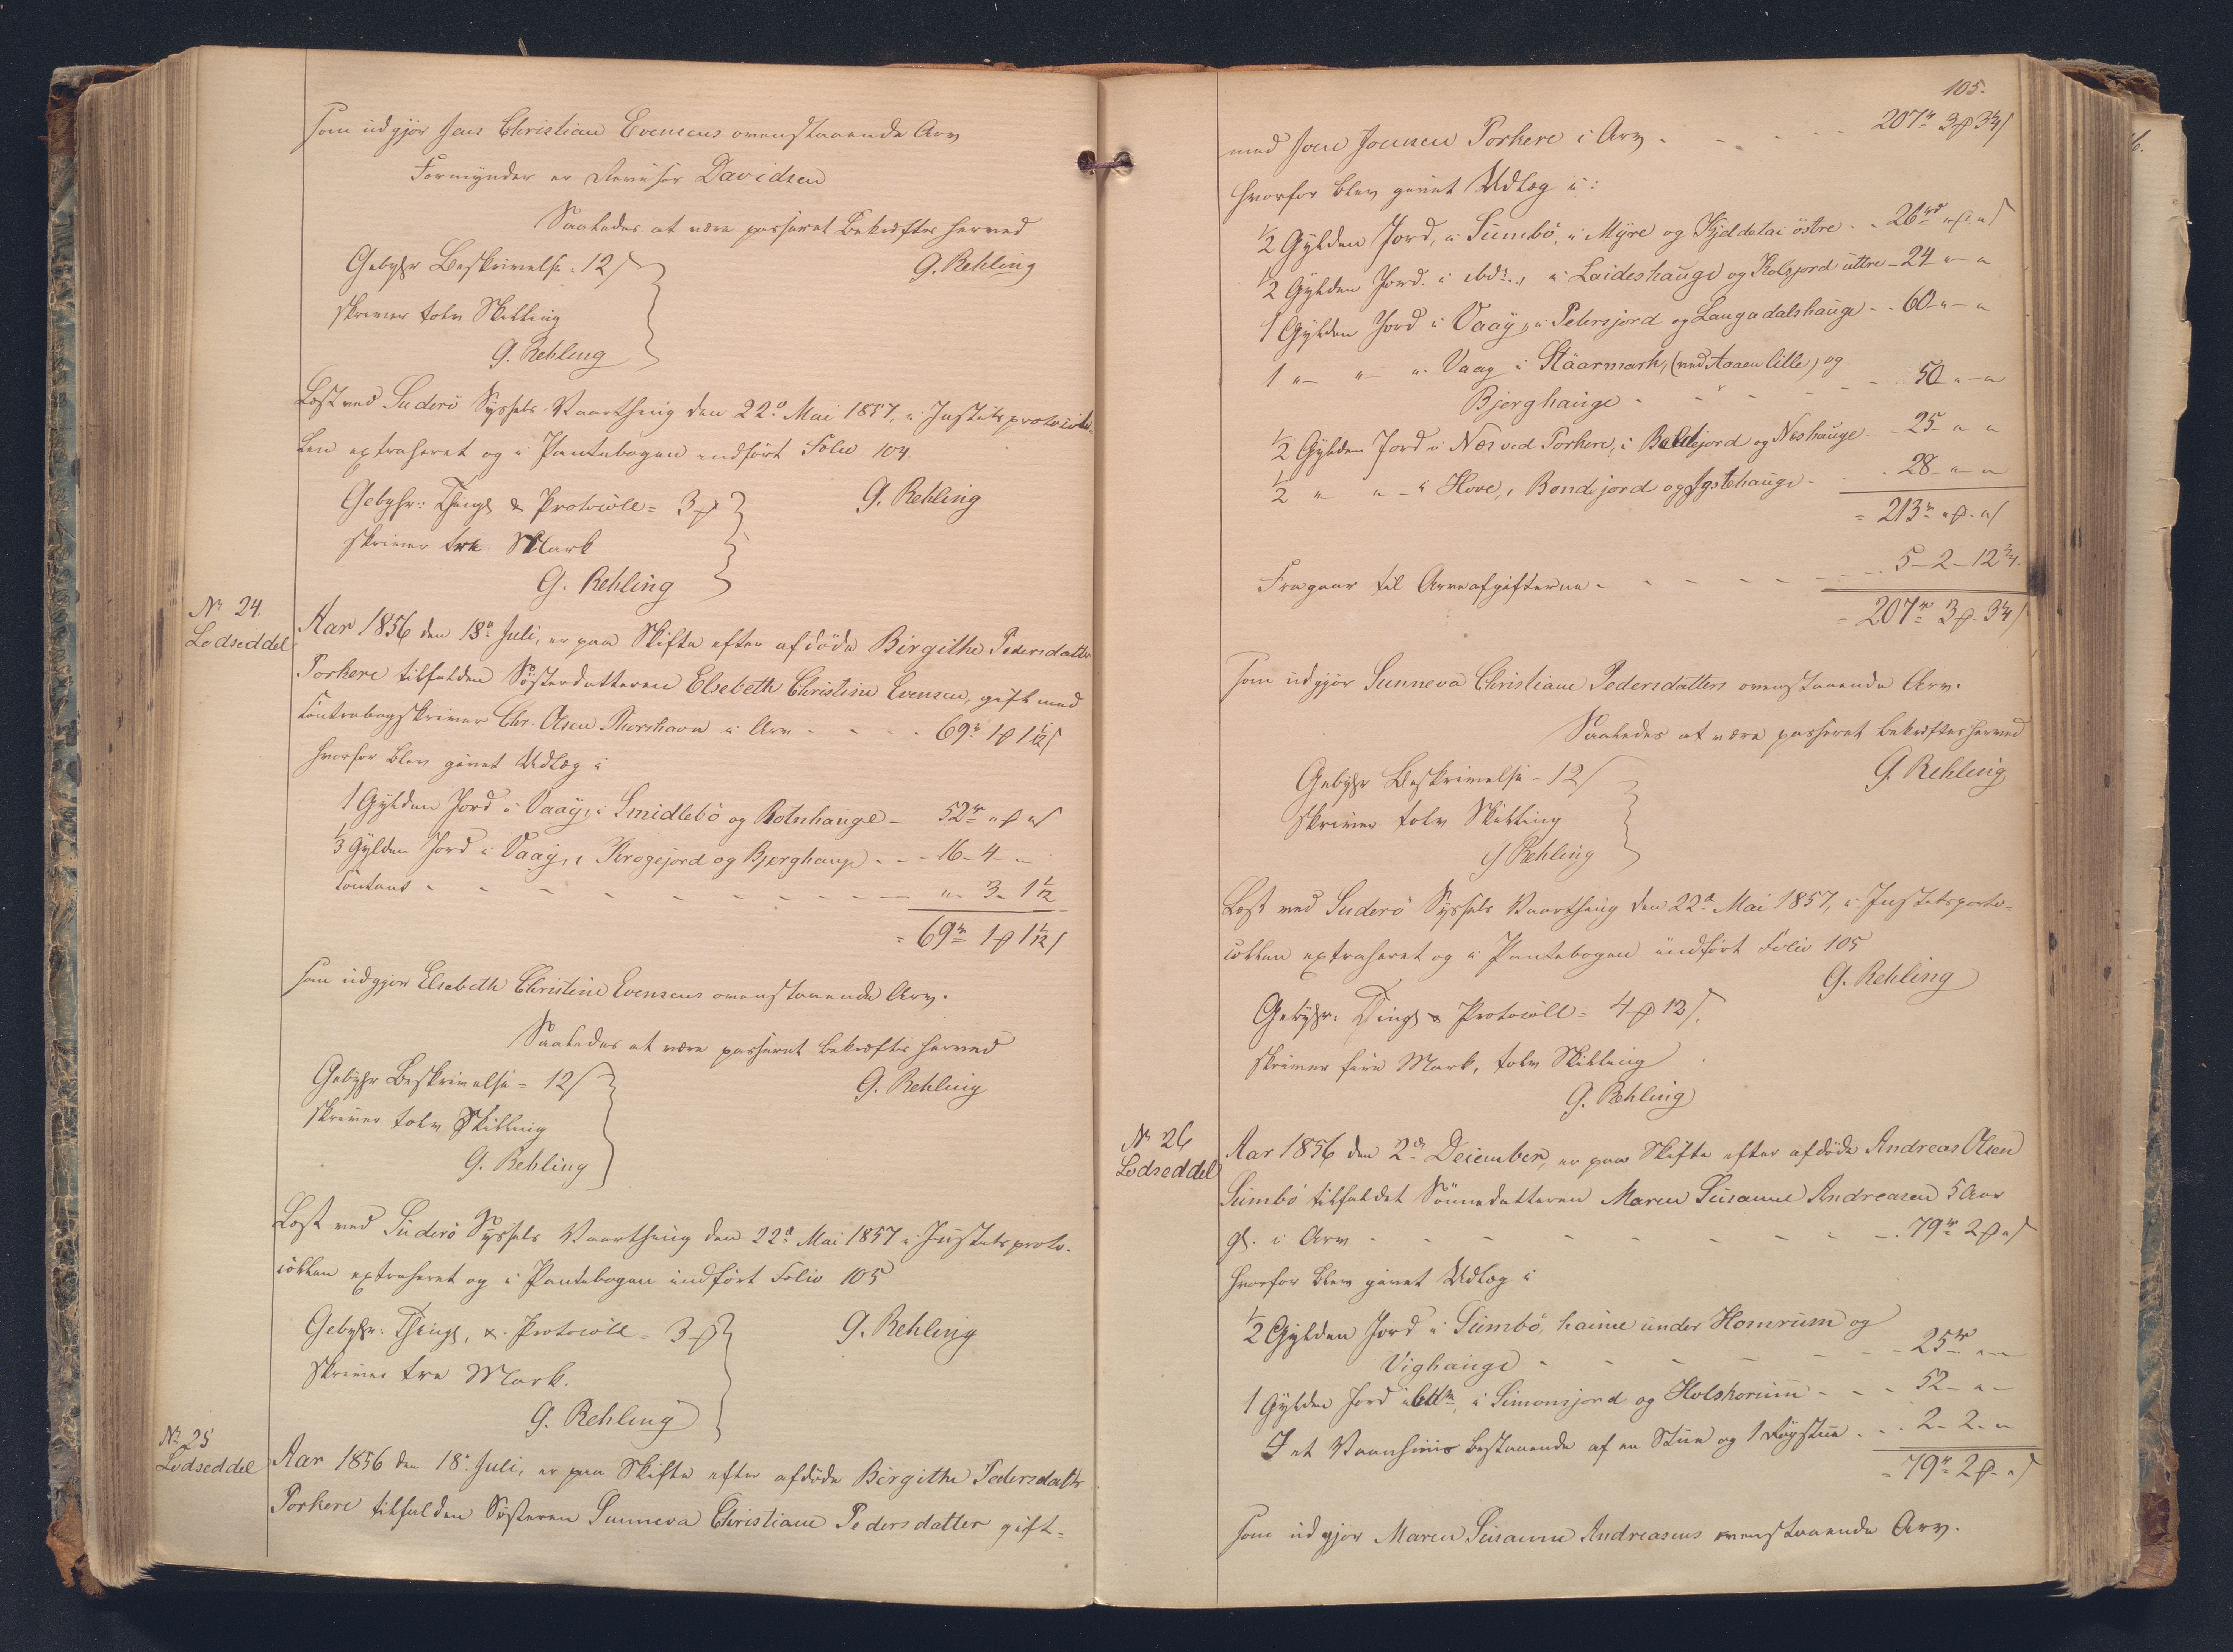 som udgjør Jens Christian Evensens ovenstaaende Arv
Formynder er Revisor Davidsen
Saaledes at være passeret bekræftes herved
G. Rehling
Gebyhr Beskrivelse: 12 s
skriver tolv Skilling
G. Rehling
Læst ved Suderö Syssels Vaarthing den 22d Mai 1857, i Justitsprotocol-
len extraheret og i Pantebogen indført Folio 104.
G. Rehling
Gebyhr: Thingl. & Protocoll = 3 ₰
skriver tre Mark
G. Rehling
No 24.
Lodseddel
Aar 1856 den 18d Juli, er paa Skifte efter afdöde Birgithe Pedersdatter
Porkere tilfalden Søsterdatteren Elsebeth Christine Evensen, gift med
Contrabogskriver Chr. Olsen Thorshavn i Arv - - - - 69 rd 1 ₰ 1 1/12 s
hvorfor blev givet Udlæg i
1 Gylden Jord i Vaag, i Smidlebö og Rotnhauge - 52 rd " ₰ " s
1/3 Gylden Jord i Vaag, i Krogejord og Bjerghauge - - 16 - 4 - "
Contant - - - - - - - " - 3 - 1 1/12
= 69 rd 1 ₰ 1 1/12 s
som udgjør Elsebeth Christine Evensens ovenstaaende Arv.
Saaledes at være passeret bekræftes herved
G. Rehling
Gebyhr Beskrivelse = 12 s
skriver tolv Skilling
G. Rehling
Læst ved Suderö Syssels Vaarthing den 22d Mai 1857 i Justitsproto-
collen extraheret og i Pantebogen indført Folio 105
G. Rehling
Gebyhr: Thingl. & Protocoll = 3 ₰
skriver tre Mark.
G. Rehling
No 25
Lodseddel
Aar 1856 den 18d Juli, er paa Skifte efter afdöde Birgithe Pedersdatter
Porkere tilfalden Søsteren Sunneva Christiane Pedersdatter gift-
105.
med Joen Joensen Porkere i Arv - - - - 207 rd 3 ₰ 3 1/4 s
hvorfor blev givet Udlæg i:
1/2 Gylden Jord, i Sumbö, i Myre og östre - - 26 rd " ₰ " s
1/2 Gylden Jord i ibd., i Laideshauge og Kolsjord uttre - 24 " - "
1 Gylden Jord i Vaag, i Petersjord og Laugadalshauge - - 60 - " - "
1 " - " - " Vaag i Stäarmark, (ved Aaaen lille) og
Bjerghauge - - - - - 50 " - "
1/2 Gylden Jord i Nes ved Porkere, i og Neshauge - - 25 - " - "
1/2 " " - i Hove, i Bondejord og - - 28 - " - "
= 213 rd " ₰ - " s
Fragaar til Arveafgifterne - - - - - - 5 - 2 - 12 3/4.
= 207 rd 3 ₰ - 3 1/4 s
som udgjør Sunneva Christiane Pedersdatters ovenstaaende Arv.
Saaledes at være passeret bekræftes herved
G. Rehling
Gebyhr Beskrivelse - 12 s
skriver tolv Skilling
G. Rehling
Læst ved Suderö Syssels Vaarthing den 22d Mai 1857, i Justitsproto-
collen extraheret og i Pantebogen indført Folio 105
G. Rehling
Gebyhr: Thingl. & Protocoll = 4 ₰ 12 s.
skriver fire Mark, tolv Skilling
G. Rehling
No 26
Lodseddel
Aar 1856 den 2d December, er paa Skifte efter afdöde Andreas Olsen
Sumbö tilfaldet Sönnedatteren Maren Susanne Andreasen 5 Aar
gl. i Arv - - - - - - - - 79 rd 2 ₰ " s
hvorfor blev givet Udlæg i
1/2 Gylden Jord i Sumbö, haime under Homrum og
Vighauge - - - - - - 25 rd " - "
1 Gylden Jord i i Simonsjord og - - - 52 - " -
I et Vaanhuus bestaaende af en Stue og 1 Røgstue - - - 2 - 2 - "
= 79 rd 2 ₰ - " s
som udgjør Maren Susanne Andreasens ovenstaaende Arv.